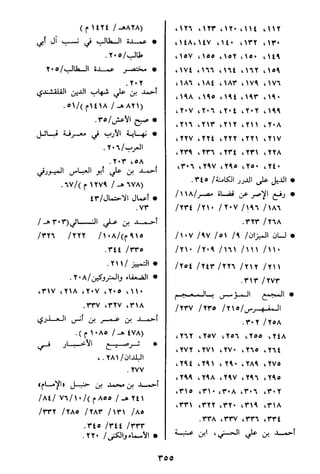 ١١٢، ١١٤، ١٢٠، ١٢٣، ١٢٦،
١٣٠، ١٣٢، ١٤٠، ١٤٧، ١٤٨،
١٤٩، ١٥٠، ١٥٢، ١٥٥، ١٥٧،
١٥٩، ١٦٢، ١٦٦، ١٧٤،
١٧٦، ١٧٩، ١٨٣، ١٨٤، ١٨٦،
١٩٠، ١٩٣، ١٩٤، ١٩٥، ١٩٨،
١٩٩، ٢٠٢، ٢٠٤، ٢٠٦، ٢٠٧،
٢٠٨، ٢١١، ٢١٢، ٢١٣، ٢١٦،
٢١٧، ٢٢١، ٢٢٢، ٢٢٤، ٢٢٧،
٢٢٨، ٢٣١، ٢٣٤، ٢٣٦، ٢٣٩،
٢٤٠، ٢٥٠، ٢٩٥، ٢٩٧، ٣٠٦،
* الذيل على الدرر الكامنة/ ٣٤٥.
* رفع الإصر عن قضاة مصر/١١٨
١٨٦/ ١٩٦/ ٢٠٧/ ٢١٠/ ٢٣٤/
٢٦٨/ ٣٢٣.
* لسان الميزان/ ٩/ ٥١/ ٩٧/ ١٠٧/
١١٠/ ١١١/ ١٦١/ ٢٠٩/ ٢١٠/
٢١١/ ٢١٢/ ٢٢٦/ ٢٤٣/ ٢٥٤/
٢٧٣/ ٣١٣.
* المجمع المؤسس بالمعجم
المفهرس/٢١٥/ ٢٣٥/ ٢٣٧/
٢٥٨/ ٣٠٢.
٢٤٨، ٢٥٥، ٢٥٦، ٢٥٧، ٢٦٢،
٢٦٤، ٢٦٥، ٢٧٠، ٢٧١، ٢٧٢،
٢٧٥، ٢٨٩، ٢٩٠، ٢٩١، ٢٩٤،
٢٩٥، ٢٩٦، ٢٩٧، ٢٩٨، ٢٩٩،
٣٠٢، ٣٠٦، ٣٠٨، ٣١٠، ٣١٥،
٣١٨، ٣١٩، ٣٢٠، ٣٢٢، ٣٣١،
٣٣٤، ٣٣٦، ٣٣٧، ٣٣٨.
أحمد بن علي الحسني، ابن عنبة
(٨٢٨هـ/ ١٤٢٤ م)
* عمدة الطالب في نسب آل أبي
طالب/٢٠٥.
* مختصر عمدة الطالب/ ٢٠٥
٢٠٢.
أحمد بن علي شهاب الدين القلقشندي
(٨٢١ هـ/ ١٤١٨م)/ ٥١.
* صبح الأعشى/ ٣٥.
* نهاية الأرب في معرفة قبائل
العرب/ ٢٠٦.
٢٠٣، ٢٥٨.
أحمد بن علي أبو العباس الميورقي
(٦٧٨ هـ/ ١٢٧٩ م)/ ٦٧.
* أعمال الاحتمال/ ٤٣
٧٣.
أحمد بن علي النسائي(٣٠٣ هـ/
٩١٥م)/ ١٠٨/ ٢٢٢/ ٣٢٦/
٣٣٥/ ٣٤٤.
* التمييز / ٢١١.
* الضعفاء والمتروكين/ ٢٠٨.
١١٠، ٢٠٥، ٢٠٧، ٢١٨، ٣١٧،
٣١٨، ٣٢٧، ٣٣٧.
أحمد بن عمر بن أنس العذري
(٤٧٨ هـ/ ١٠٨٥ م).
* ترصيع الأخبار في
البلدان/ ٢٨١.
٢٧٧.
أحمد بن محمد بن حنبل «الإمام»
٢٤١ هـ / ٨٥٥ م)/ ١٠/ ٧٦/ ٨٤/
٨٥/ ١٣١/ ٢٨٣/ ٢٨٥/ ٣٣٢/
٣٣٣/ ٣٤٤/ ٣٤٥.
* الأسماء والكنى/ ٢٢٠.
٣٥٥